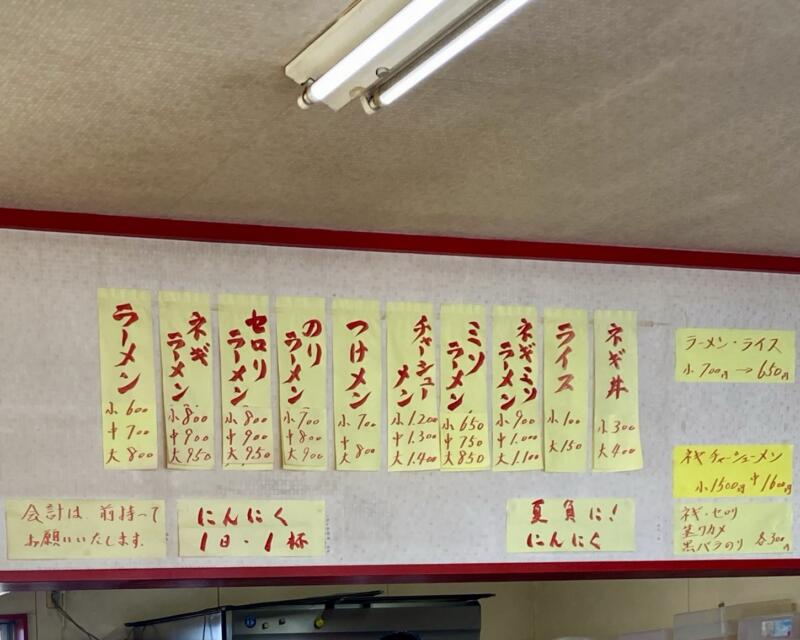 ラーメン
小 600
中 700
大 800
ネギ
ラーメン
小 800
中 900
大 950
セロリ
ラーメン
小 800
中 900
大 950
のり
ラーメン
小 700
中 800
大 900
つけメン
小 700
中
大 800
チャーシュー
メン
小 1.200
中 1.300
大 1.400
ミソ
ラーメン
小 650
中 750
大 850
ネギミソ
ラーメン
小 900
中 1.000
大 1.100
ライス
小 100
大 150
ネギ丼
小 300
大 400
ラーメン・ライス
小 700円 → 650円
ネギチャーシューメン
小 1500円 中 1600円
ネギ・セロリ
茎ワカメ
黒バラのり 各300円
会計は、前持って
お願いいたします。
にんにく
1日・1杯
夏負に!
にんにく